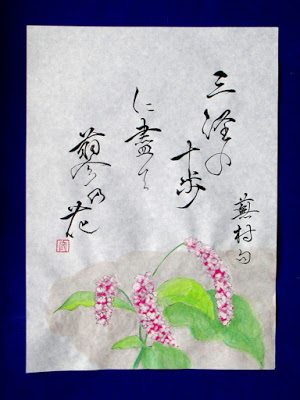 三径の
十歩
に盡て
蓼乃花
蕪村句